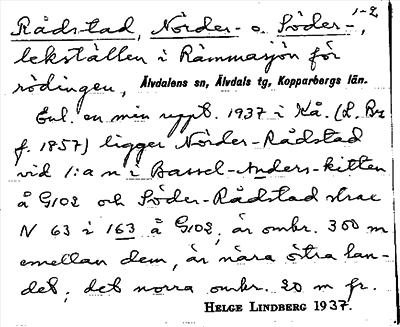 1-2
Rådstad, Norder- o. Söder-,
lekställen i Rämmasjön för
rödingen, Älvdalens sn, Älvdals tg, Kopparbergs län.
Enl. en min uppt. 1937 i Kå. (L. Br
f. 1857) ligger Nörder-Rådstad
vid 1:a n i Bassel-Anders-kitten
å G102 och Söder-Rådstad strax
N 63 i 163 å G102, är omkr. 300 m
emellan dem, är nära östra lan-
det; det norra omkr. 20 m fr.
HELGE LINDBERG 1937.